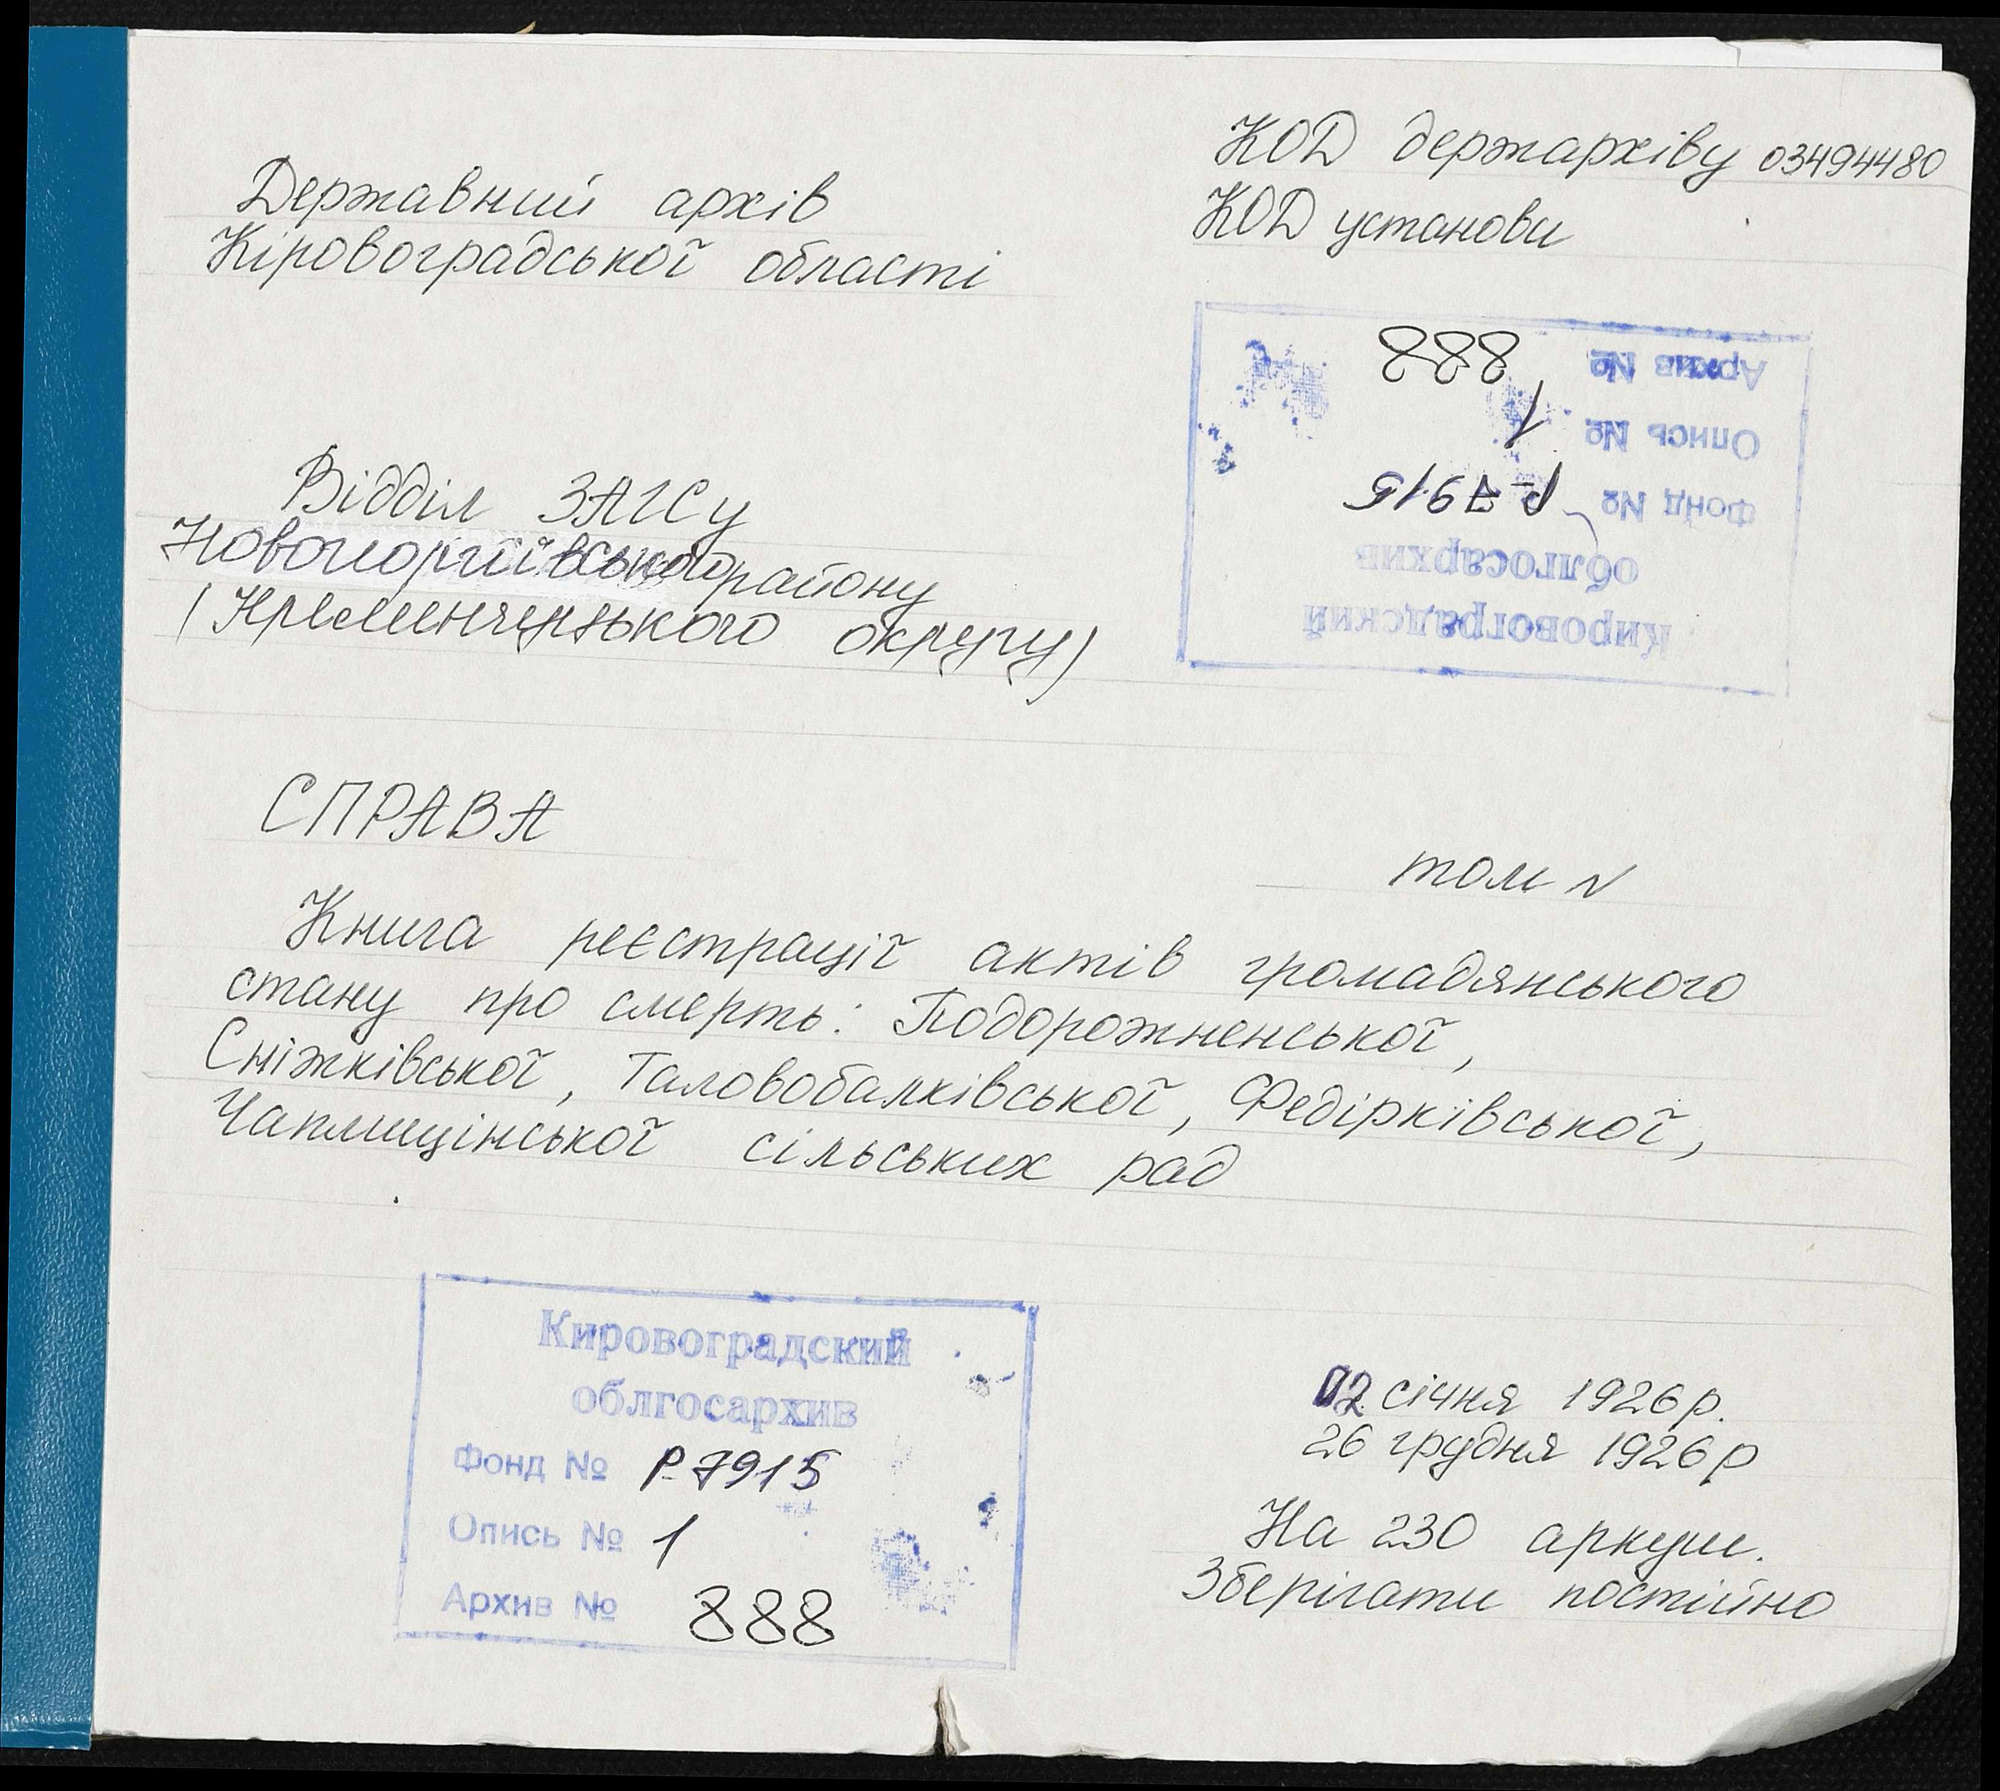 Державний архів
Кіровоградської області
КОД держархіву 03494480
КОД установи
Кировоградский
облгосархив
Фонд № Р-7915
Опись № 1
Архив № 888
Відділ ЗАГСу
Новогеоргіївського району
(Кременчуцького округу)
СПРАВА
том №
Книга реєстрації актів громадянського
стану про смерть: Подорожненської,
Сніжківської, Таловобалківської, Федірківської,
Чаплищінської сільських рад
Кировоградский
облгосархив
Фонд № Р-7915
Опись № 1
Архив № 888
02 січня 1926 р.
26 грудня 1926 р
На 230 аркуш.
Зберігати постійно